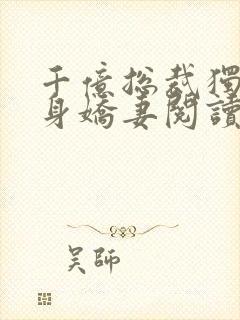 千億総裁獨
身嬌妻閱讀
吴師